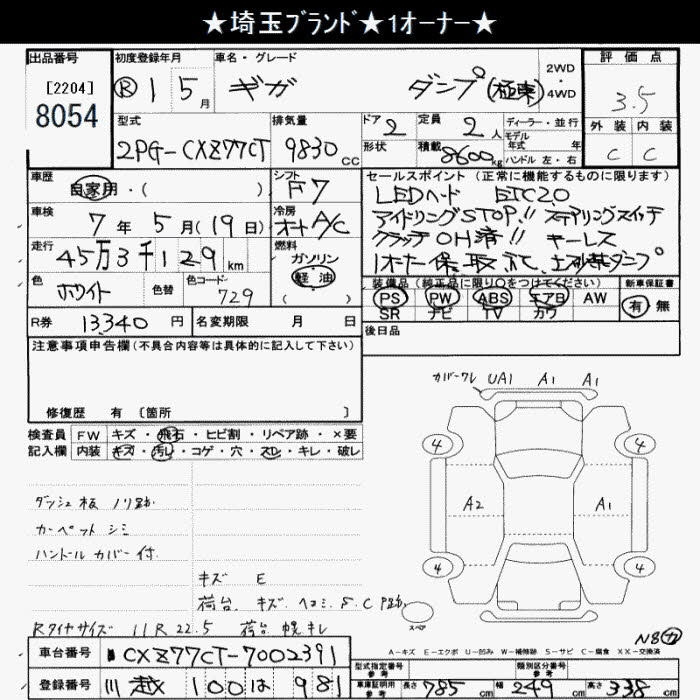 ★埼玉ブランド★1オーナー★
出品番号 初度登録年月 車名・グレード 2WD・4WD 評価点
[2204]
8054
Ⓡ 1 5月 ギガ ダンプ(極東) 3.5
型式 排気量 ドア 2 定員 2人 ディーラー・並行 外装 内装
2PG-CXZ77CT 9830cc 形状 積載 8600kg モデル年式 年式 ハンドル 左・右 C C
車歴 自家用・( ) シフト F7 セールスポイント (正常に機能するものに限ります)
LEDヘッド ETC2.0
車検 7年5月(19日) 冷房 オートA/C アイドリングSTOP!! ステアリングスイッチ
走行 45万3千129km 燃料 ガソリン 軽油 ( ) クラッチOH済!! キーレス
1オーナー 保、取、記、土砂禁ダンプ
色 ホワイト 色替 色コード 729 装備品(純正品に限り○をつけてください) 新車保証書
PS PW ABS エアB AW 有 無
SR ナビ TV カワ
R券 13,340円 名変期限 月 日 後日品
注意事項申告欄(不具合内容等は具体的に記入して下さい)
修復歴 有 〔箇所 〕
検査員 FW キズ・飛石・ヒビ割・リペア跡・×要
記入欄 内装 キズ・汚レ・コゲ・穴・スレ・キレ・破レ
カバーワレ UA1 A1 A1
4 4
A2 A1
4 4
スペア
ダッシュ板 ノリ跡
カーペット シミ
ハンドル カバー付
キズ E
荷台 キズ、ヘコミ、S、C P跡
Rタイヤサイズ 11R22.5 荷台 幌キレ
A-キズ E-エクボ U-凹み W-補修跡 S-サビ C-腐食 XX-交換済
車台番号 CXZ77CT-7002391
登録番号 川越 100 は 981
型式指定番号 参考 類別区分番号 参考
車庫証明用 参考 長さ 785cm 幅 249cm 高さ 338cm